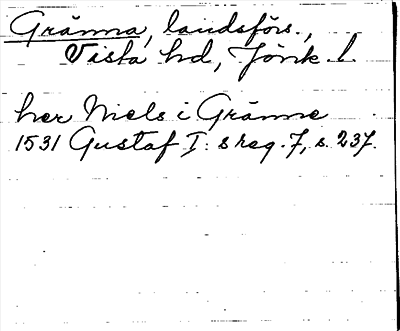 Gränna, landsförs.,
Vista hd, Jönk. l.
her Niels i Gränne
1531 Gustaf I:s reg. 7, s. 237.